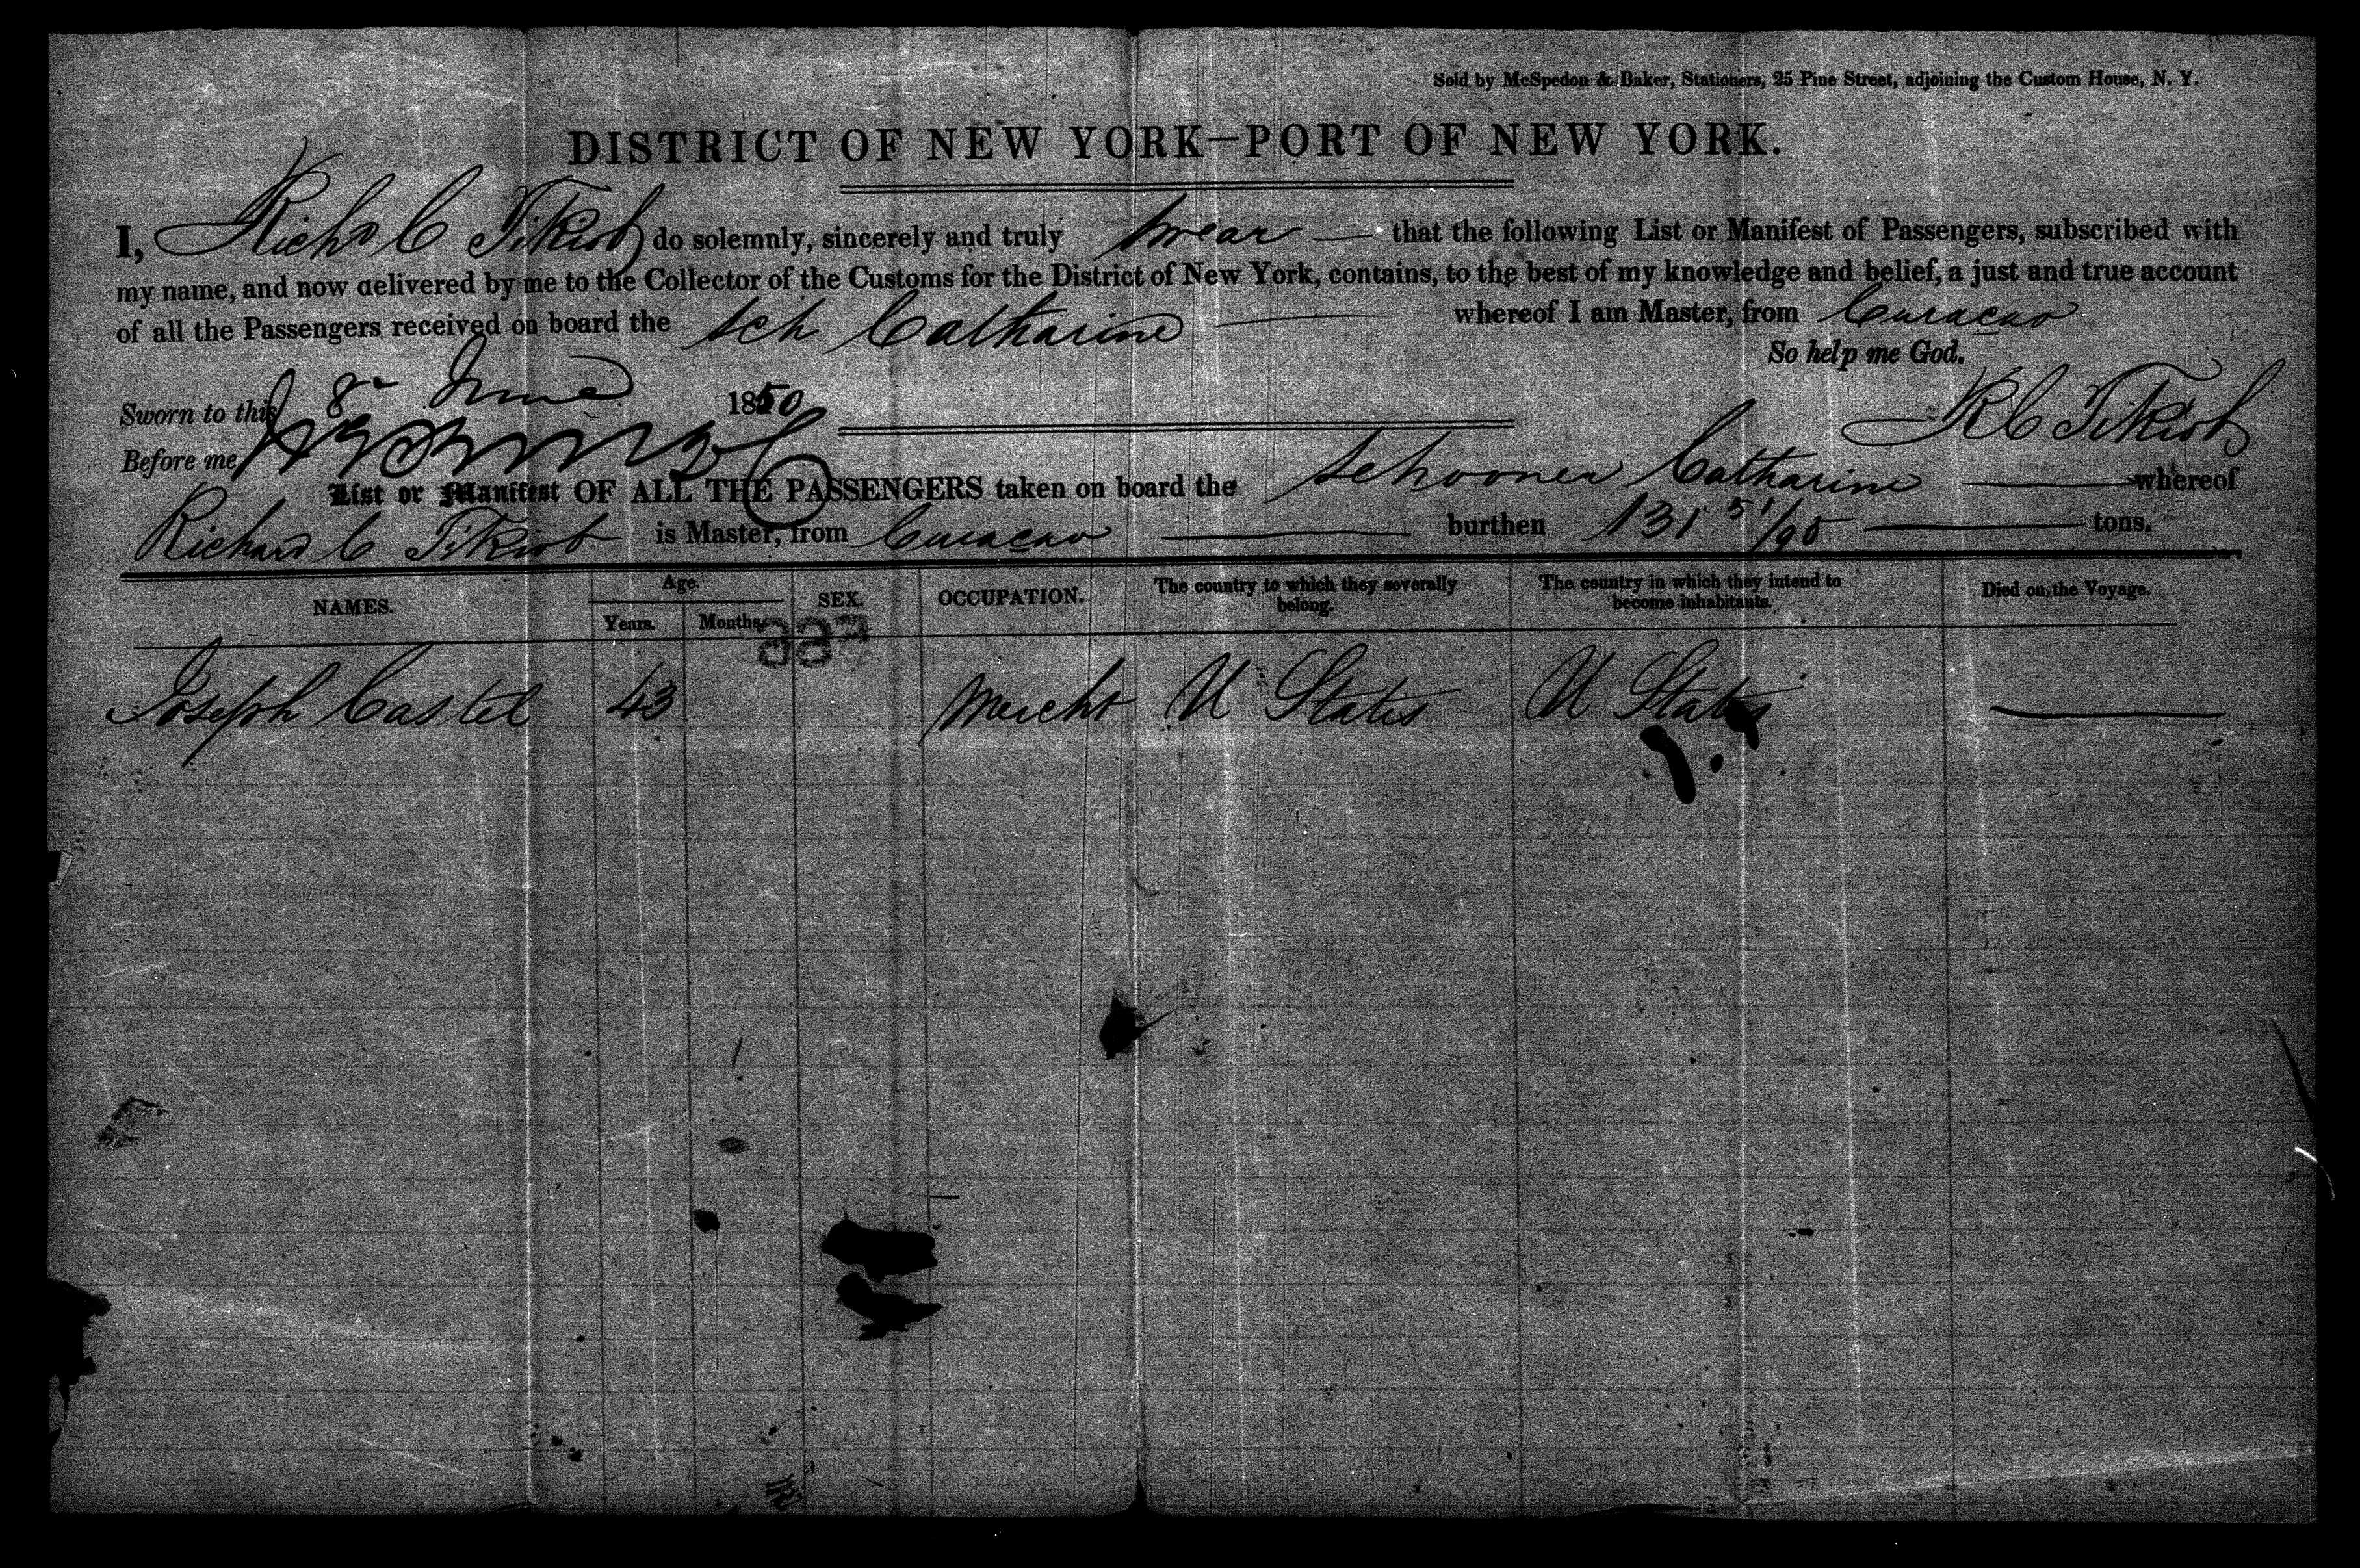 Sold by McSpedon & Baker, Stationers, 25 Pine Street, adjoining the Custom House, N. Y.
DISTRICT OF NEW YORK—PORT OF NEW YORK.
I, Richd C do solemnly, sincerely and truly swear — that the following List or Manifest of Passengers, subscribed with
my name, and now delivered by me to the Collector of the Customs for the District of New York, contains, to the best of my knowledge and belief, a just and true account
of all the Passengers received on board the Sch Catharine whereof I am Master, from Curacao
So help me God.
Sworn to this 8 June 1850
R C
Before me
List or Manifest OF ALL THE PASSENGERS taken on board the Schooner Catharine whereof
Richard C is Master, from Curacao burthen 131 51/95 tons.
NAMES. Age. Years. Months. SEX. OCCUPATION. The country to which they severally belong. The country in which they intend to become inhabitants. Died on the Voyage.
Joseph Castel 43 Mercht U States U States